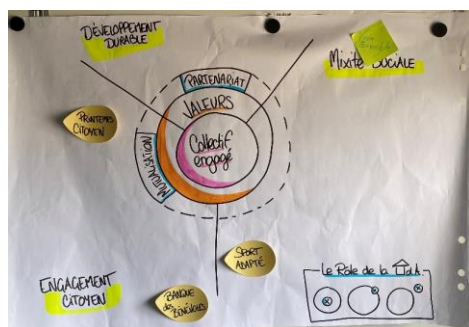 DÉVELOPPEMENT
DURABLE
MIXITÉ SOCIALE
PARTENARIAT
VALEURS
MUTUALISATION
Collectif
engagé
PRINTEMPS
CITOYEN
SPORT
ADAPTÉ
BANQUE
des
BÉNÉVOLES
ENGAGEMENT
CITOYEN
Le Rôle de la